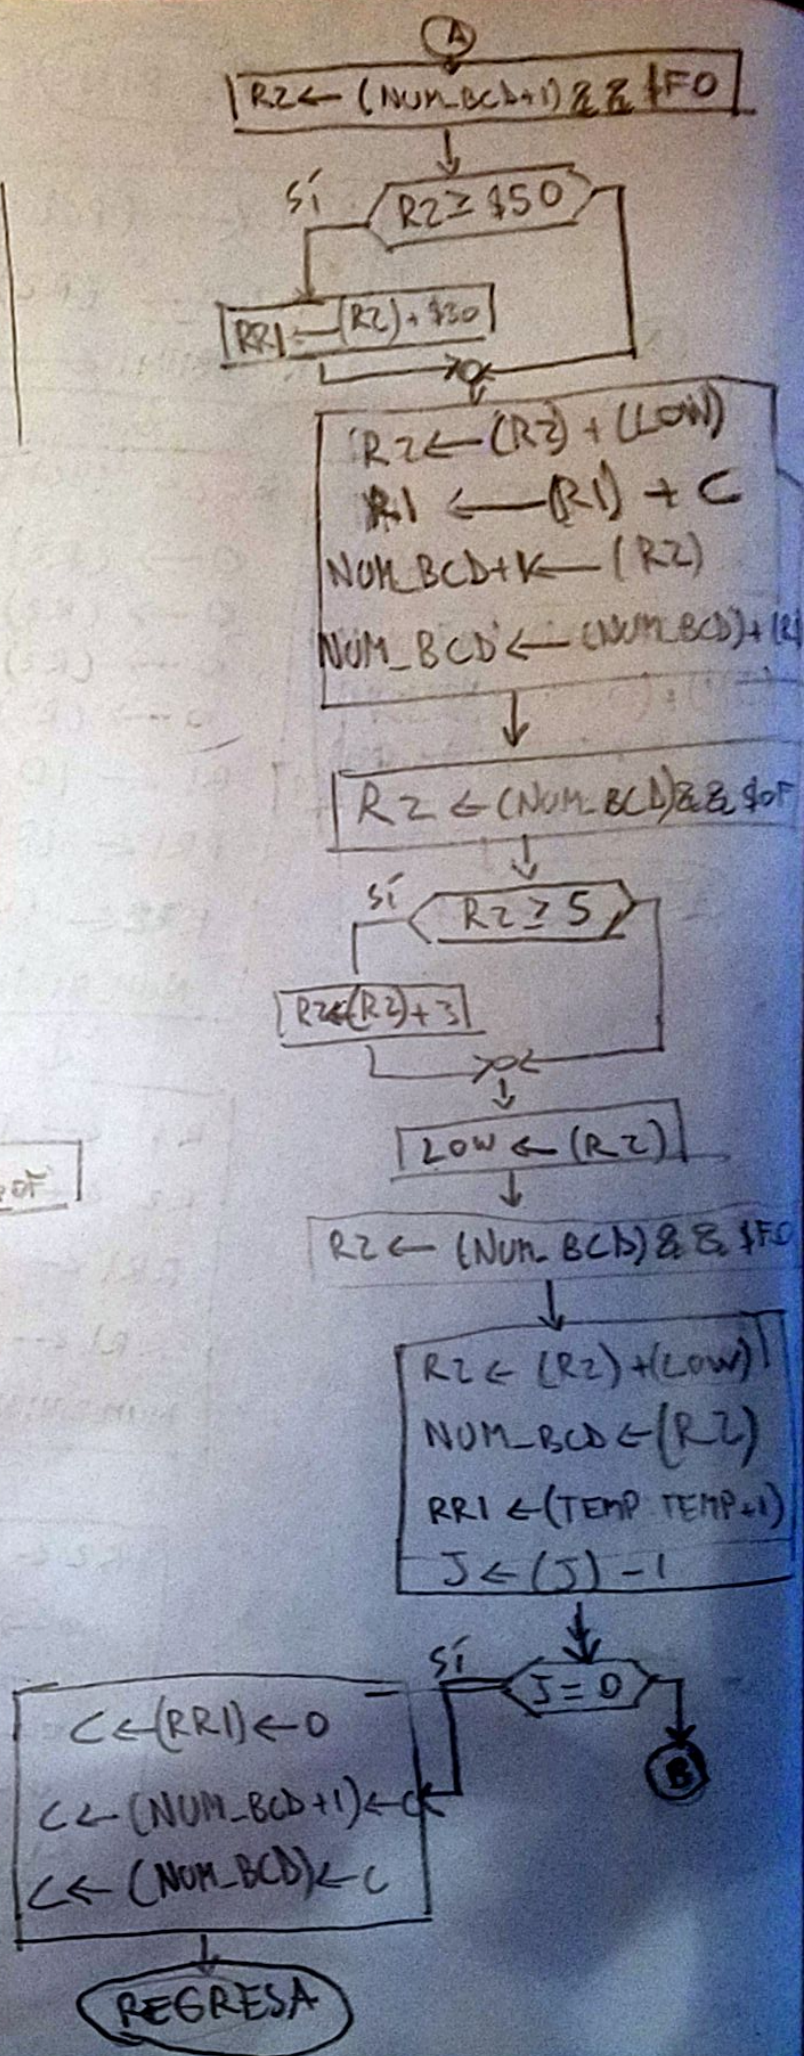 A
R2 ← (NUM_BCD+1) && $F0
SÍ
R2 ≥ $50
RR1 ← (R2) + $30
R2 ← (R2) + (LOW)
R1 ← (R1) + C
NUM_BCD+1 ← (R2)
NUM_BCD ← (NUM_BCD) + (R1
R2 ← (NUM_BCD) && $0F
SÍ
R2 ≥ 5
R2 ← (R2) + 3
LOW ← (R2)
0F
R2 ← (NUM_BCD) && $F0
R2 ← (R2) + (LOW)
NUM_BCD ← (R2)
RR1 ← (TEMP TEMP+1)
J ← (J) - 1
SÍ
J = 0
B
C ← (RR1) ← 0
C ← (NUM_BCD+1) ← C
C ← (NUM_BCD) ← C
REGRESA